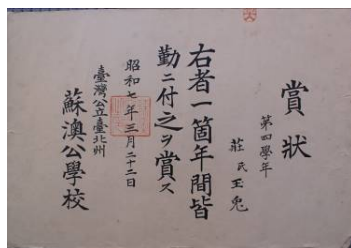 賞狀
第四學年
莊氏玉兎
右者一箇年間皆
勤ニ付之ヲ賞ス
昭和七年三月二十二日
臺灣公立臺北州
蘇澳公學校